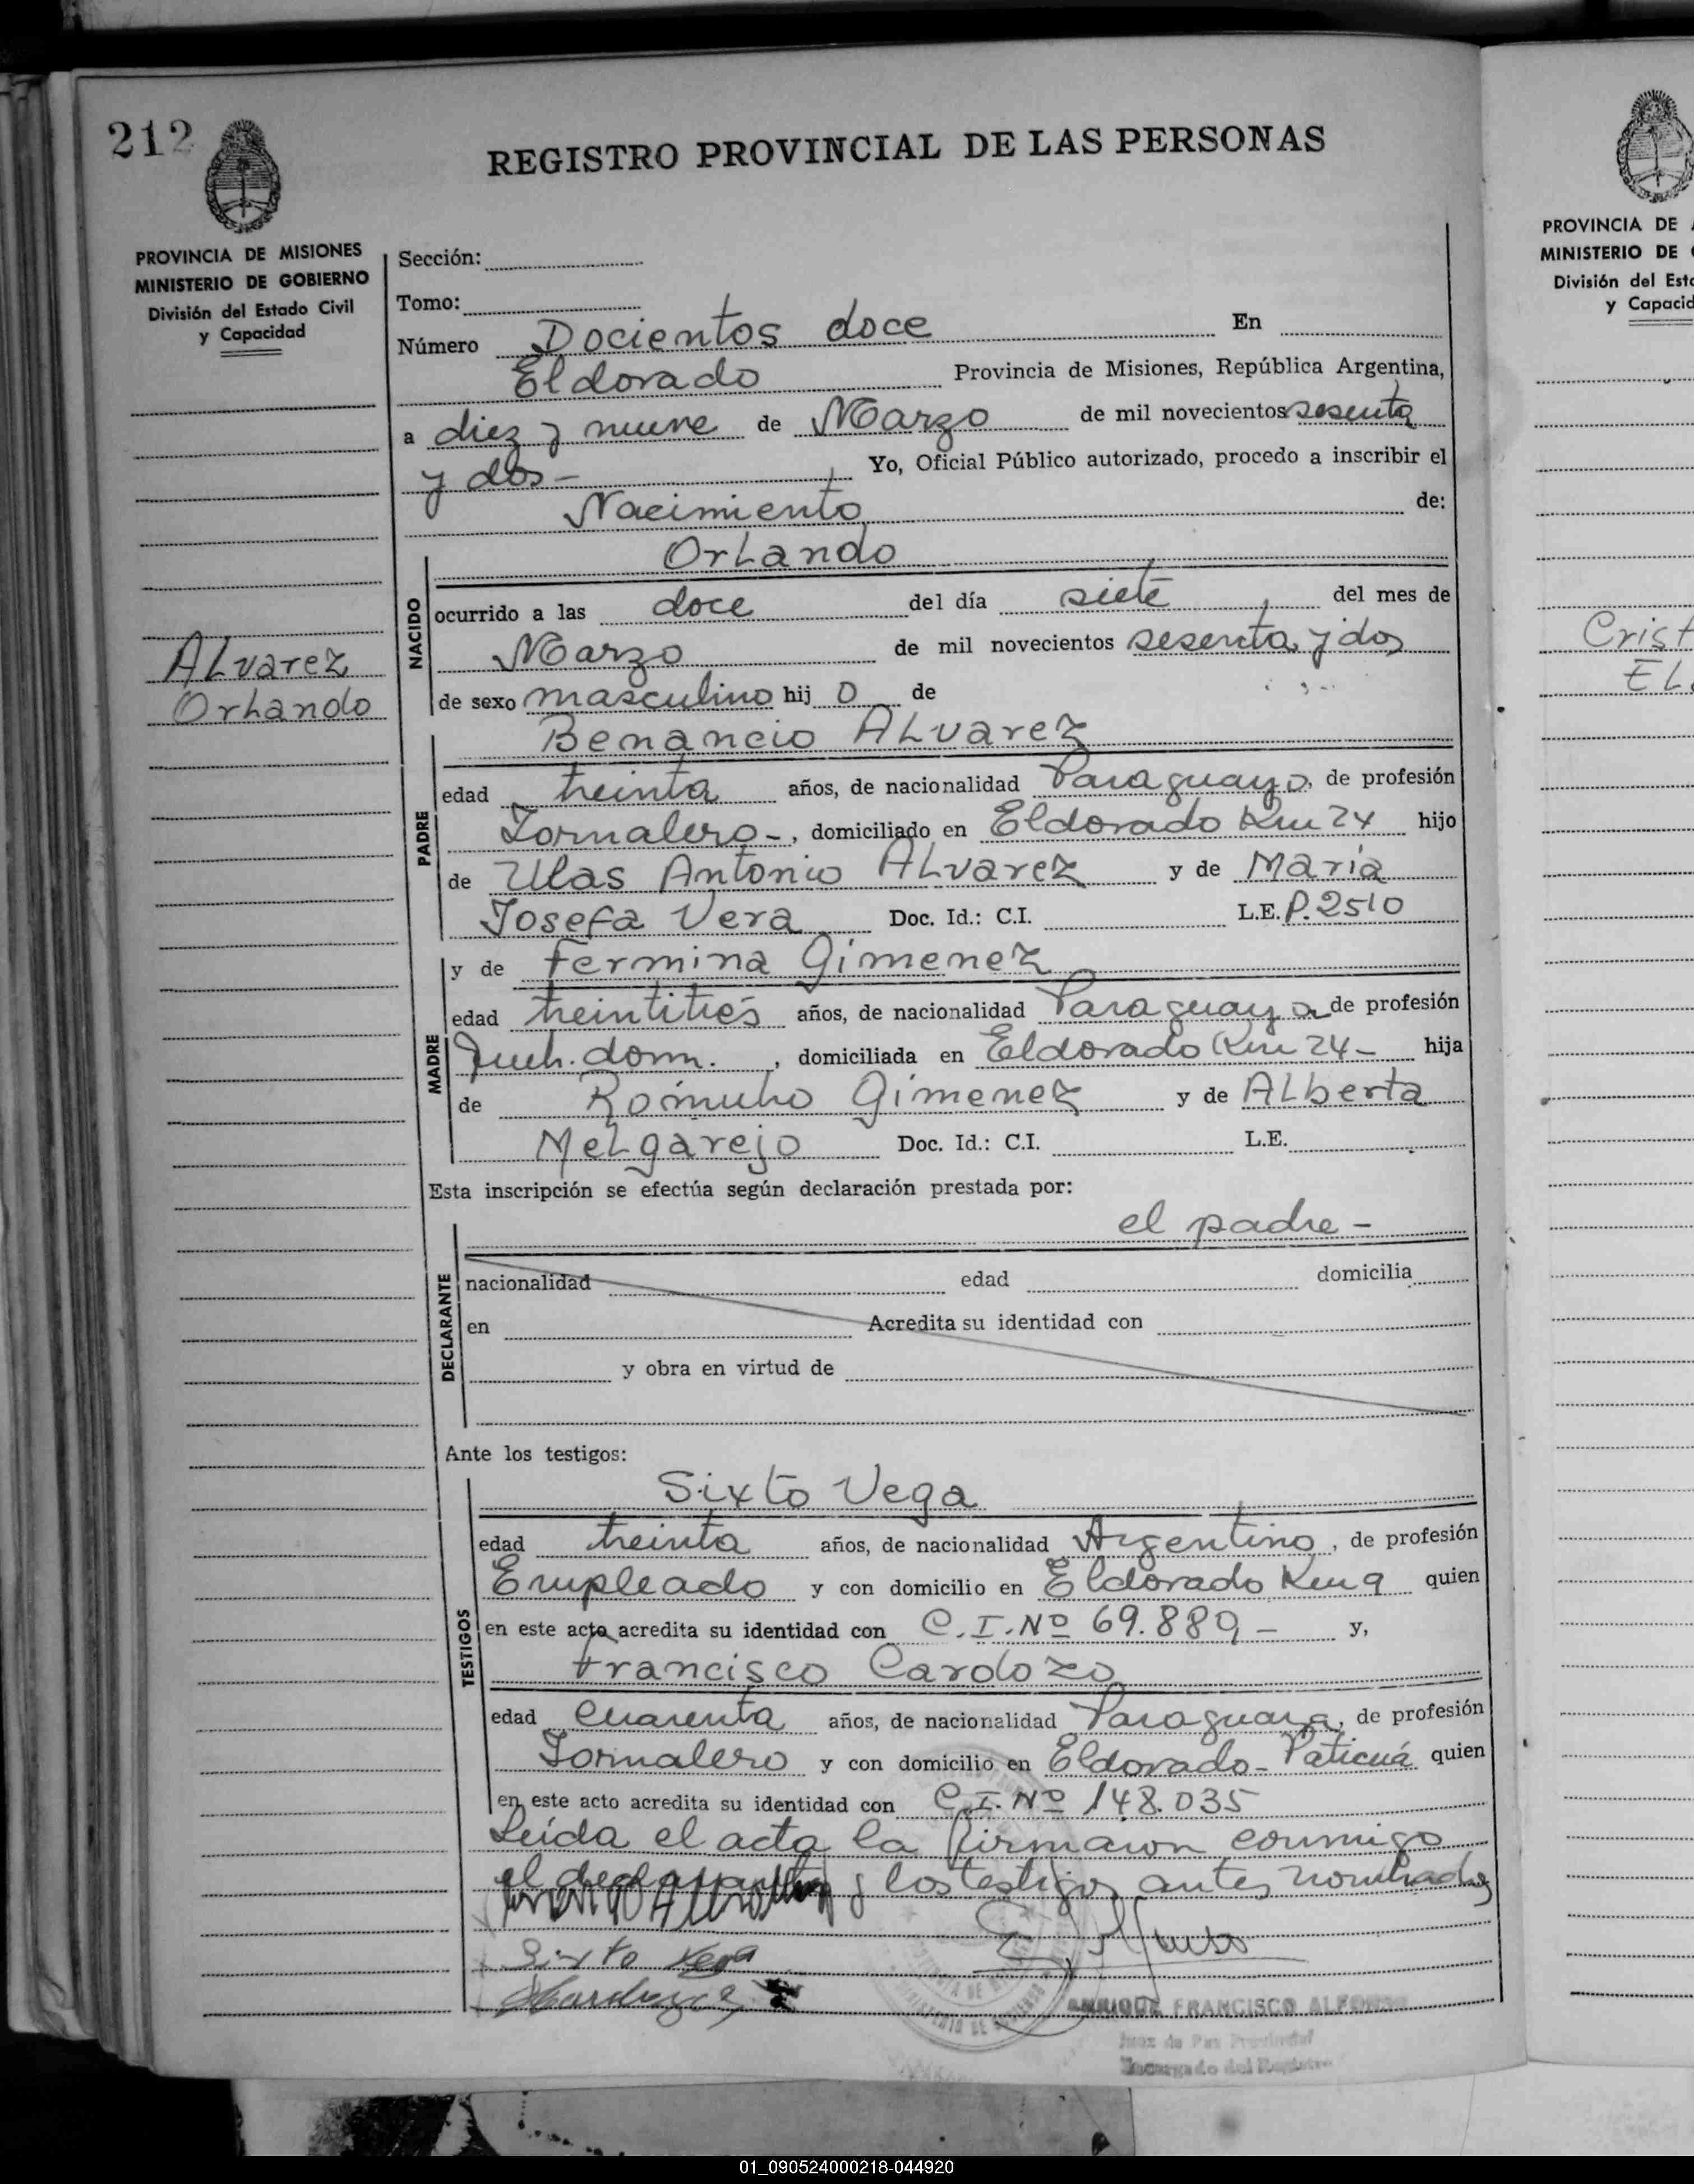 212
REGISTRO PROVINCIAL DE LAS PERSONAS
PROVINCIA DE MISIONES
MINISTERIO DE GOBIERNO
División del Estado Civil
y Capacidad
Alvarez
Orlando
Sección:
Tomo:
Número Docientos doce En
Eldorado Provincia de Misiones, República Argentina,
a diez y nueve de Marzo de mil novecientos sesenta
y dos - Yo, Oficial Público autorizado, procedo a inscribir el
Nacimiento de:
Orlando
NACIDO
ocurrido a las doce del día siete del mes de
Marzo de mil novecientos sesenta y dos
de sexo masculino hij o de
Benancio Alvarez
PADRE
edad treinta años, de nacionalidad Paraguayo, de profesión
Jornalero -, domiciliado en Eldorado Km 24 hijo
de Ulas Antonio Alvarez y de María
Josefa Vera Doc. Id.: C.I. L.E. P. 2510
y de Fermina Gimenez
MADRE
edad treintitrés años, de nacionalidad Paraguaya de profesión
dom. , domiciliada en Eldorado Km 24 - hija
de Rómulo Gimenez y de Alberta
Melgarejo Doc. Id.: C.I. L.E.
Esta inscripción se efectúa según declaración prestada por:
el padre -
DECLARANTE
nacionalidad edad domicilia
en Acredita su identidad con
y obra en virtud de
Ante los testigos:
TESTIGOS
Sixto Vega
edad treinta años, de nacionalidad Argentino, de profesión
Empleado y con domicilio en Eldorado Km 9 quien
en este acto acredita su identidad con C.I. Nº 69.889 - y,
Francisco Cardozo
edad cuarenta años, de nacionalidad Paraguaya, de profesión
Jornalero y con domicilio en Eldorado - Paticuá quien
en este acto acredita su identidad con C.I. Nº 148.035
Leída el acta la firmaron conmigo
el declarante y los testigos antes nombrados
Sixto Vega
ENRIQUE FRANCISCO ALFONSO
Juez de Paz Provincial
Encargado del Registro
PROVINCIA DE
MINISTERIO DE
División del Esta
y Capacid
Crist
EL
01_090524000218-044920